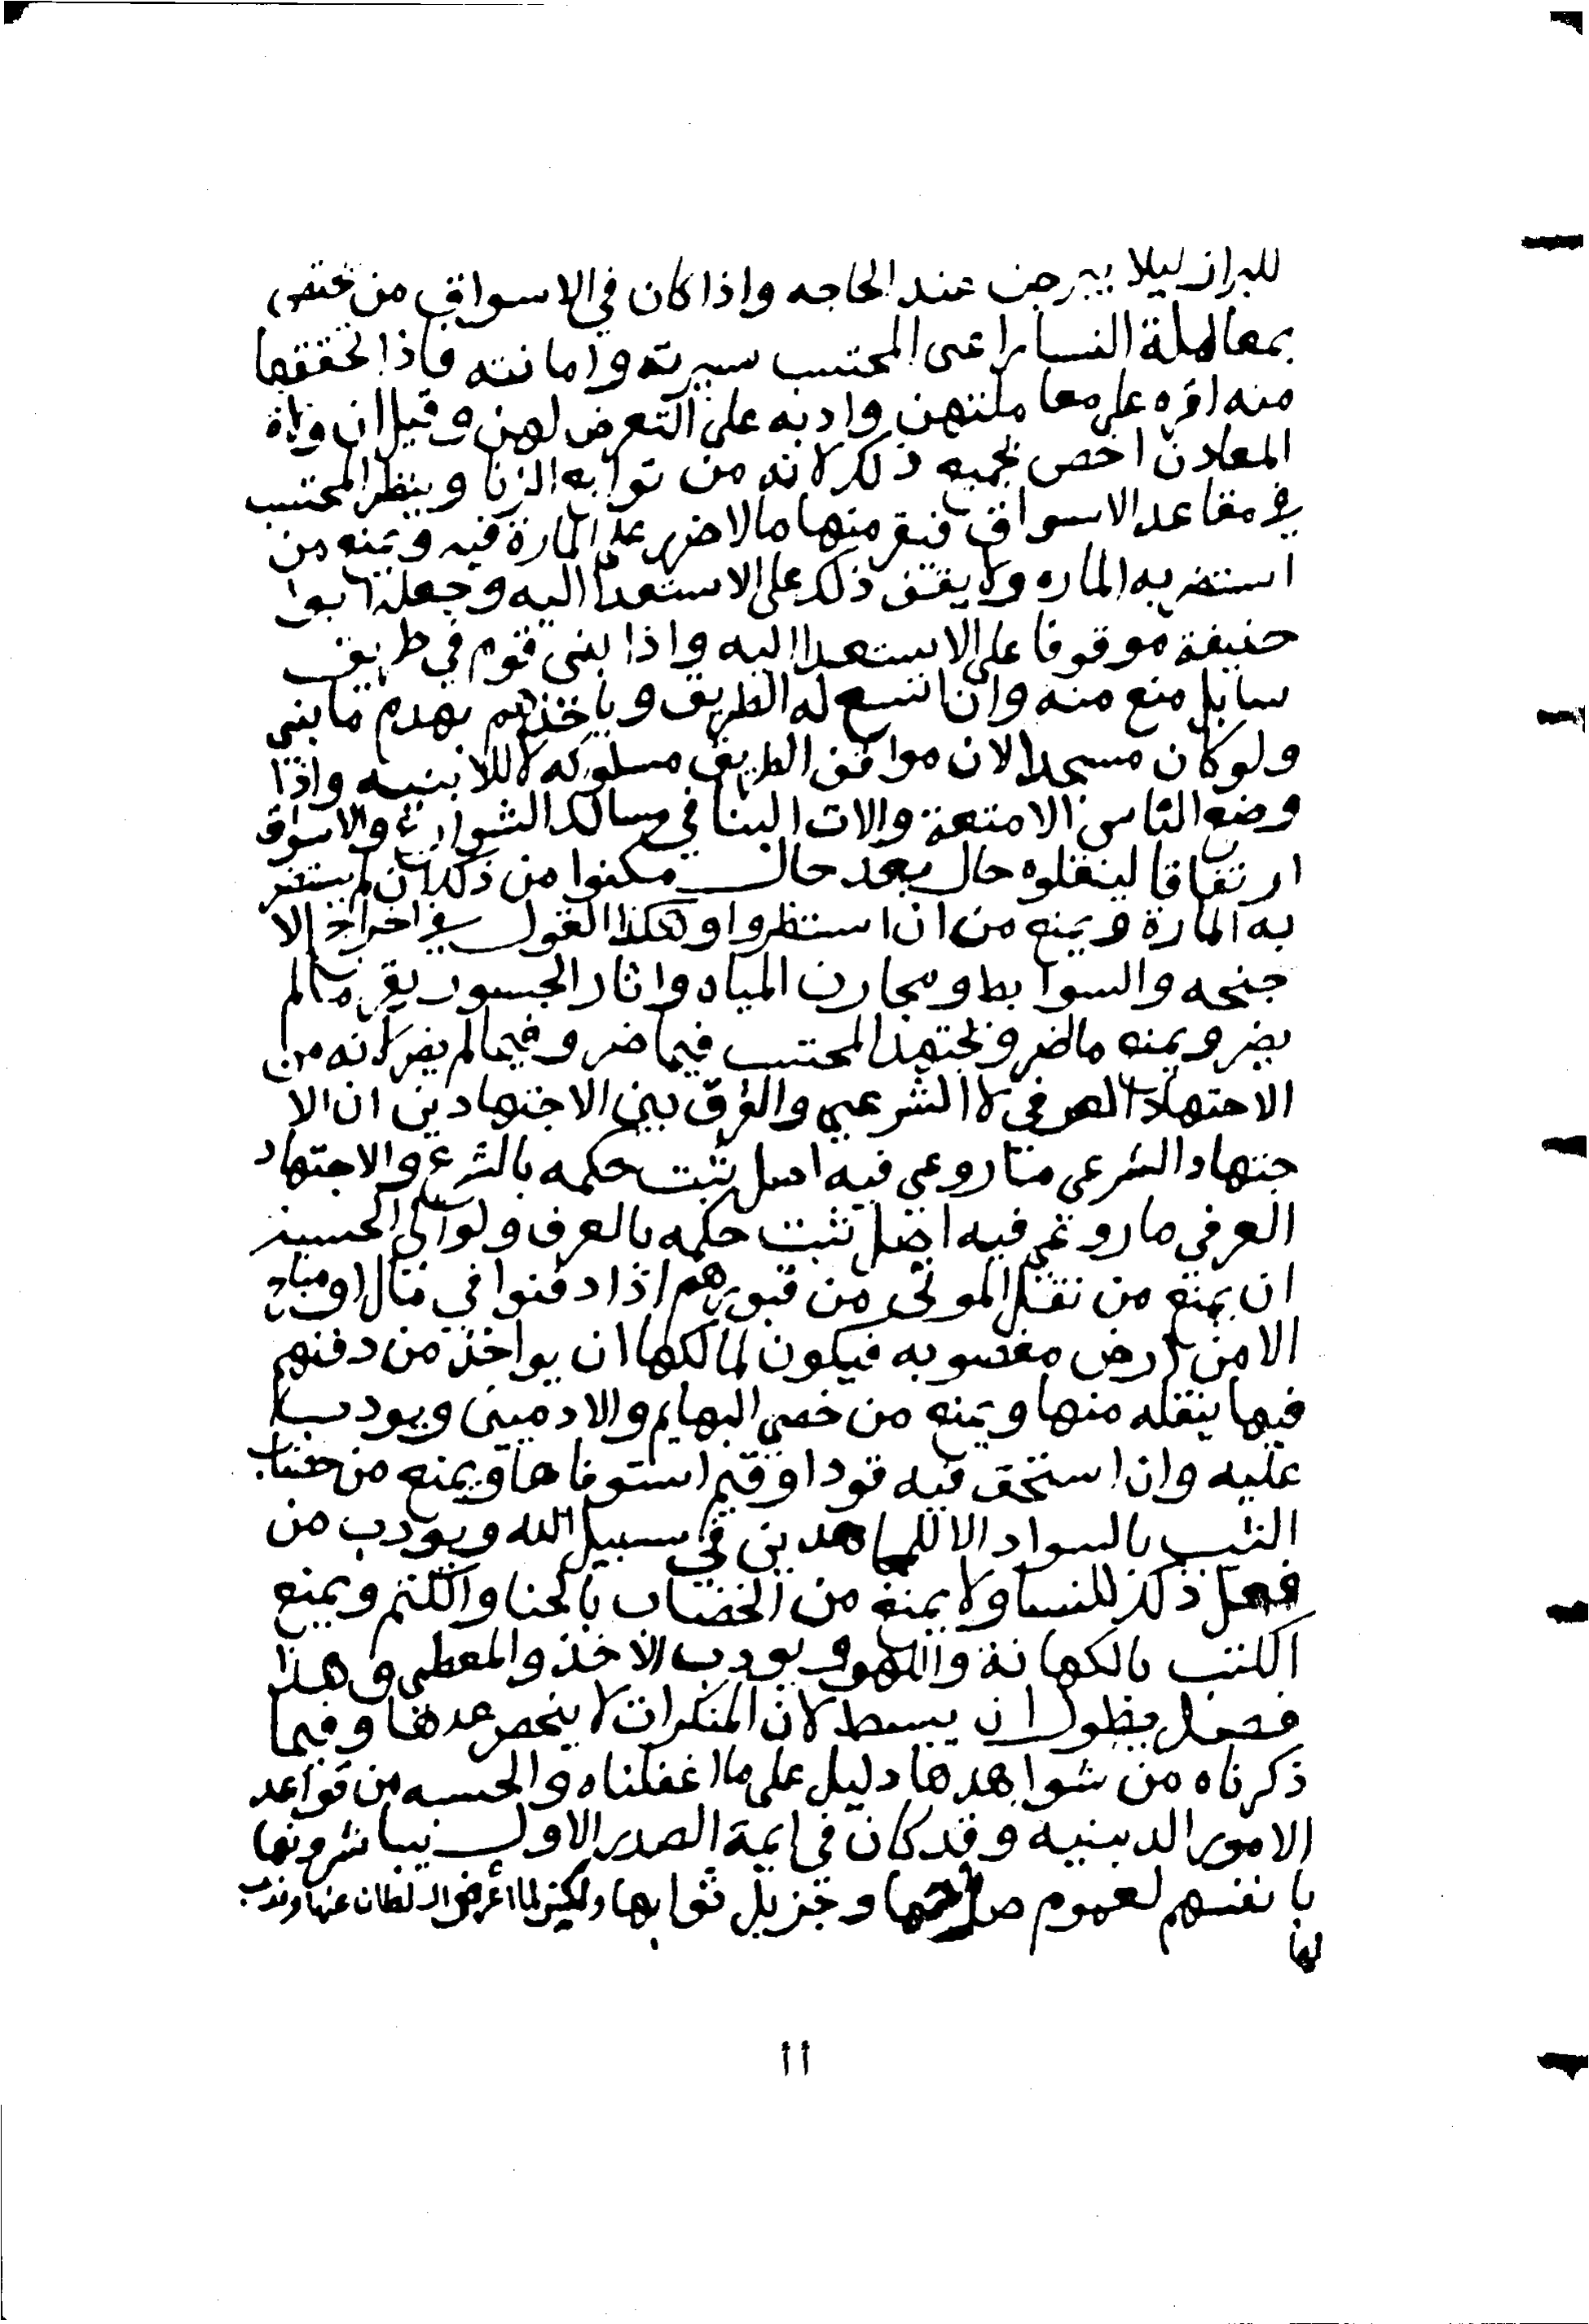 للبراز ليلا يبرجن عند الحاجه واذا كان في الاسواق من يختص
بمعاملة النسا راعى المحتسب سيرته وامانته فاذا تحققها
منه اقره على معاملتهن وادبه على التعرض لهن وقيل ان ولاة
المعادن اخص بجميع ذلك لانه من توابع الزنا وينظر المحتسب
في مقاعد الاسواق فيقر منها ما لا ضرر على المارة فيه ويمنع من
استضر به الماره ولا يقف ذلك على الاستعدا اليه وجعله ابوا
حنيفة موقوفا على الاستعدا اليه واذا بنى قوم في طريق
سابل منع منه وان اتسع له الطريق وياخذهم بهدم ما بني
ولو كان مسجدا لان موافق الطريق مسلوكه لا للابنيه واذا
وضع الناس الامتعة والات البنا في مسالك الشوارع والاسواق
ارتفاقا لينقلوه حال بعد حال مكنوا من ذلك ان لم يستضر
به المارة ويمنع من ان استظروا وهكذا القول في اخراج الا
جنحه والسوابط ومجارن المياه واثار الجسور يقر مالم
يضر ويمنع ماضر ويجتهد المحتسب فيما ضر وفيما لم يضر لانه من
الاجتهاد العرفي لا الشرعي والفرق بين الاجتهادين ان الا
جتهاد الشرعي ما روعي فيه اصل تثبت حكمه بالشرع والاجتهاد
العرفي ما روعي فيه اصل تثبت حكمه بالعرف ولوالى الحسبة
ان يمنع من نقل الموتى من قبورهم اذا دفنوا في مال او مباح
الا من ارض مغصوبه فيكون لمالكها ان يواخذ من دفنهم
فيها بنقله منها ويمنع من خصي البهايم والادميين ويودب
عليه وان استحق فيه قودا وقيم استوفاها ويمنع من خضاب
الشيب بالسواد الا للمجاهدين في سبيل الله ويودب من
فعل ذلك للنسا ولا يمنع من الخضاب بالحنا والكتم ويمنع
الكتب بالكهانة واللهو ويودب الاخذ والمعطي وهذا
فصل يطول ان يبسط لان المنكرات لا ينحصر عددها وفيما
ذكرناه من شواهدها دليل على ما اغفلناه والحسبه من قواعد
الامور الدينيه وقد كان في ايمة الصدر الاول يباشرونها
بانفسهم لعموم صلاحها وجزيل ثوابها ولكن لما اعرض السلطان عنها وندب
لها
١١